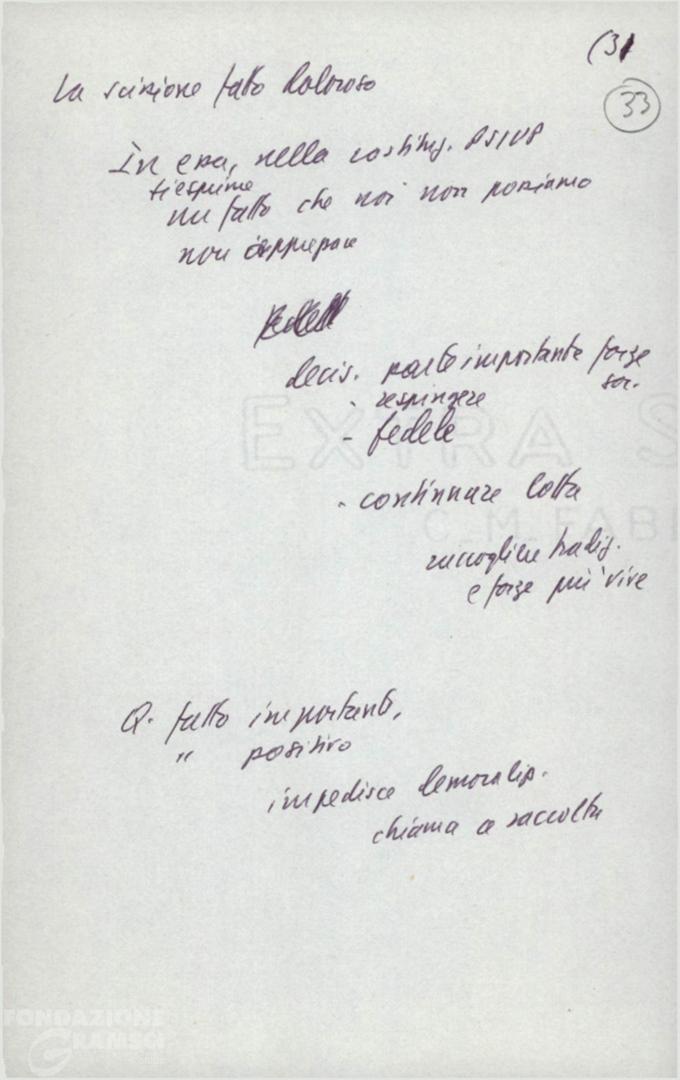 (31
33
La scissione fatto doloroso
In essa, nella costituz. PSIUP
si esprime
un fatto che noi non possiamo
non apprezzare
decis. parte importante forze
soc.
- respingere
- fedele
- continuare lotta
raccogliere tradiz.
e forze più vive
Q. fatto importante,
" positivo
impedisce demoraliz.
chiama a raccolta
EXTRA S
C.M.FABI
FONDAZIONE
GRAMSCI